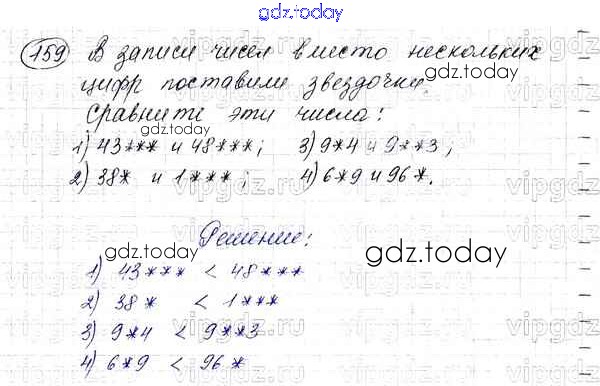 gdz.today
159) В записи чисел вместо нескольких
цифр поставили звездочки.
gdz.today
Сравните эти числа:
gdz.today
1) 43*** и 48***; 3) 9*4 и 9**3;
2) 38* и 1***; 4) 6*9 и 96*.
vipgdz.ru vipgdz.ru vipgdz
Решение:
gdz.today gdz.today
1) 43*** < 48***
2) 38* < 1***
vipgdz.ru vipgdz.ru vipgdz
3) 9*4 < 9**3
4) 6*9 < 96*
gdz.today